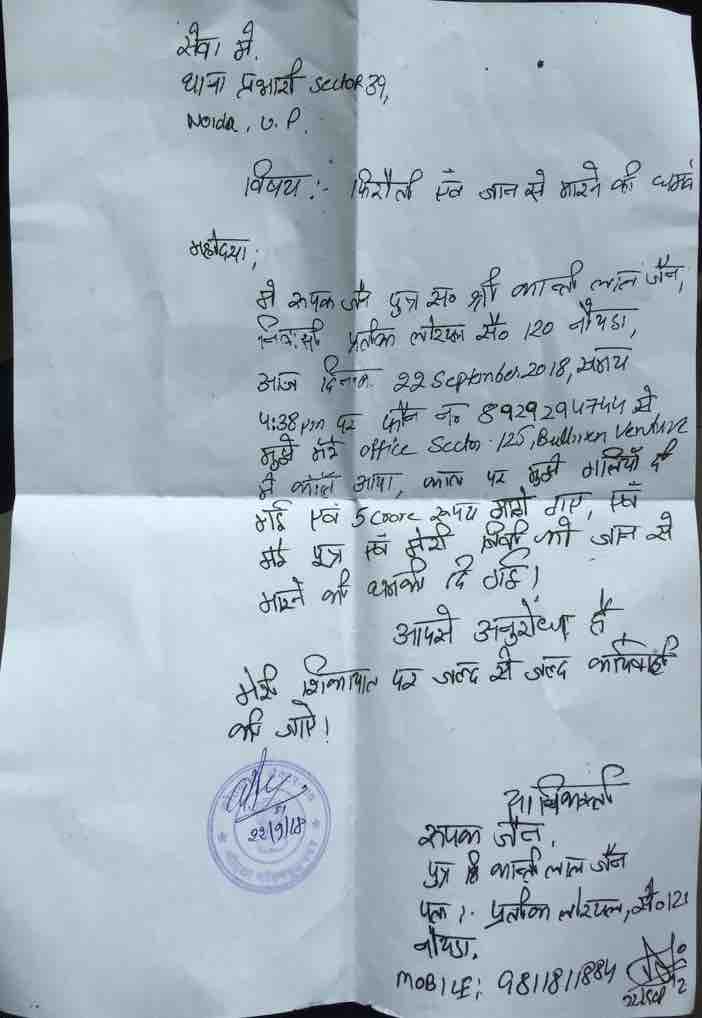 सेवा में,
थाना प्रभारी Sector 39,
Noida, U.P.
विषय :- फिरौती एवं जान से मारने की धमकी
महोदया,
मे रूपक जैन पुत्र स्व० श्री कान्ती लाल जैन,
निवासी प्रतीक लोरयल सै० 120 नौयडा,
आज दिनांक 22 September 2018, समय
4:38 pm पर फोन न० 8929294744 से
मुझे मेरे office Sector-125, Bullmen Venture
में कॉल आया, काल पर मुझे गालियाँ दी
गई एवं 5 crore रूपय मांगे गए, एवं
मेरे पुत्र एवं मेरी बिवी को जान से
मारने की धमकी दि गई।
आपसे अनुरोध है
मेरी शिकायत पर जल्द से जल्द कार्यवाही
की जाऐ।
याचिकर्ता
रूपक जैन,
पुत्र श्री कान्ती लाल जैन
पता :- प्रतीक लोरयल, सै० 121
नौयडा.
MOBILE: 9811811884
22/9/18